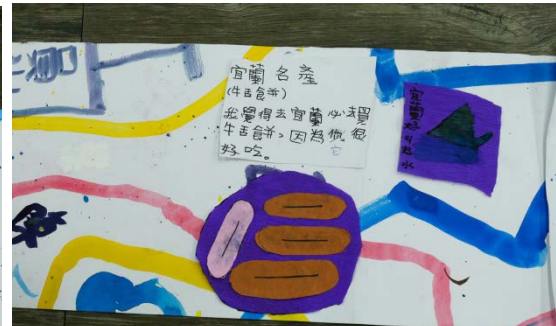 宜蘭名產
(牛舌餅)
我覺得去宜蘭必買
牛舌餅,因為他很
它
好吃。
宜蘭好山好水